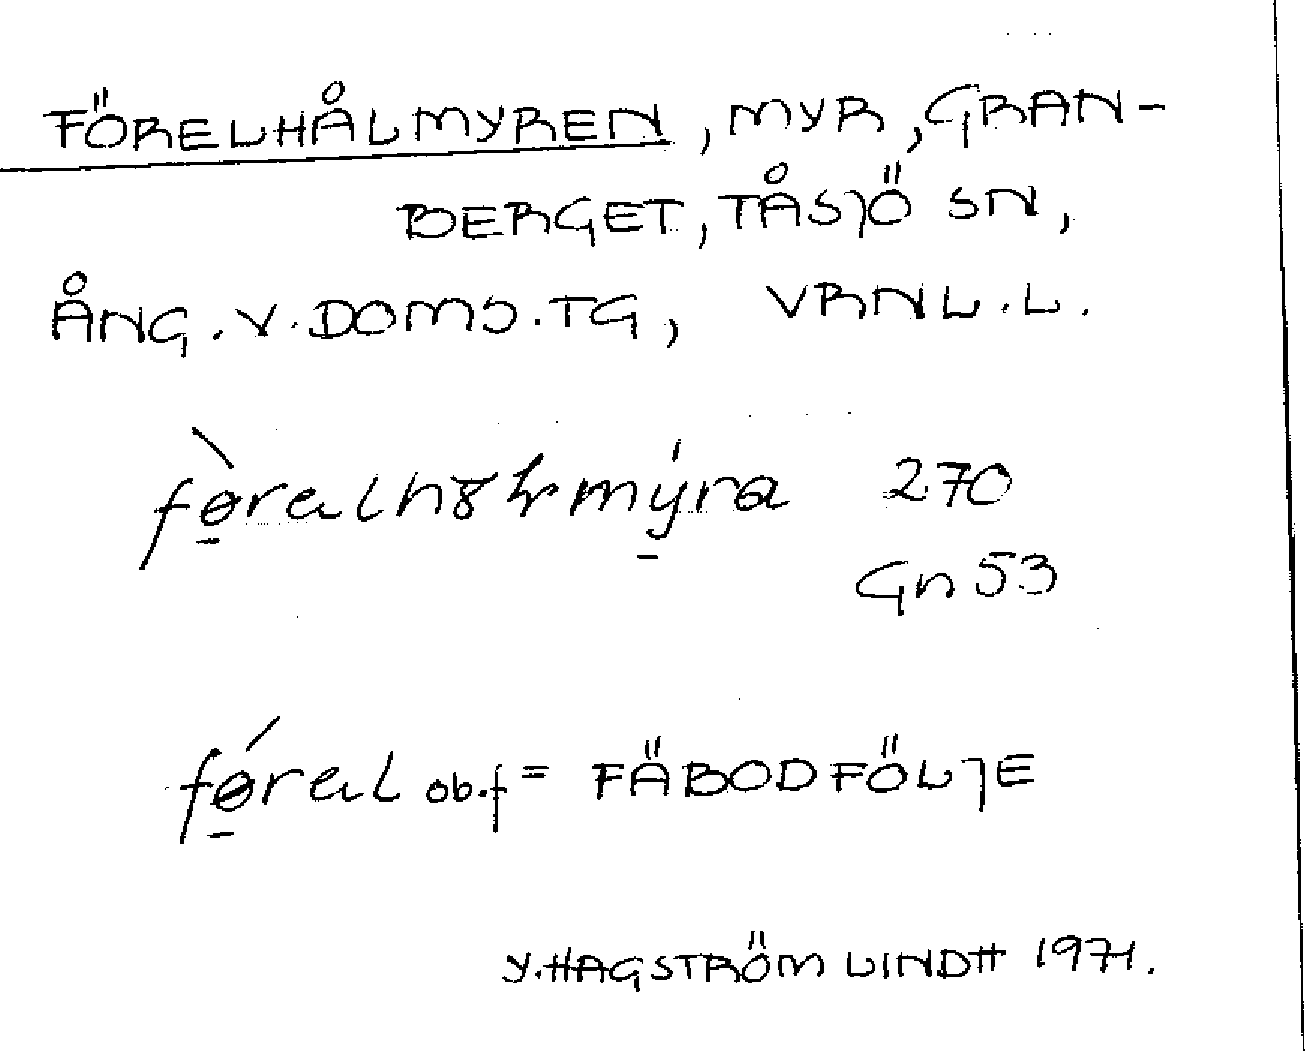 FÖRELHÅLMYREN, MYR, GRAN-
BERGET, TÅSJÖ SN,
ÅNG. V. DOMS. TG, VRNL. L.
270
Gn 53
førel ob.f = FÄBODFÖLJE
Y. HAGSTRÖM LINDH 1971.